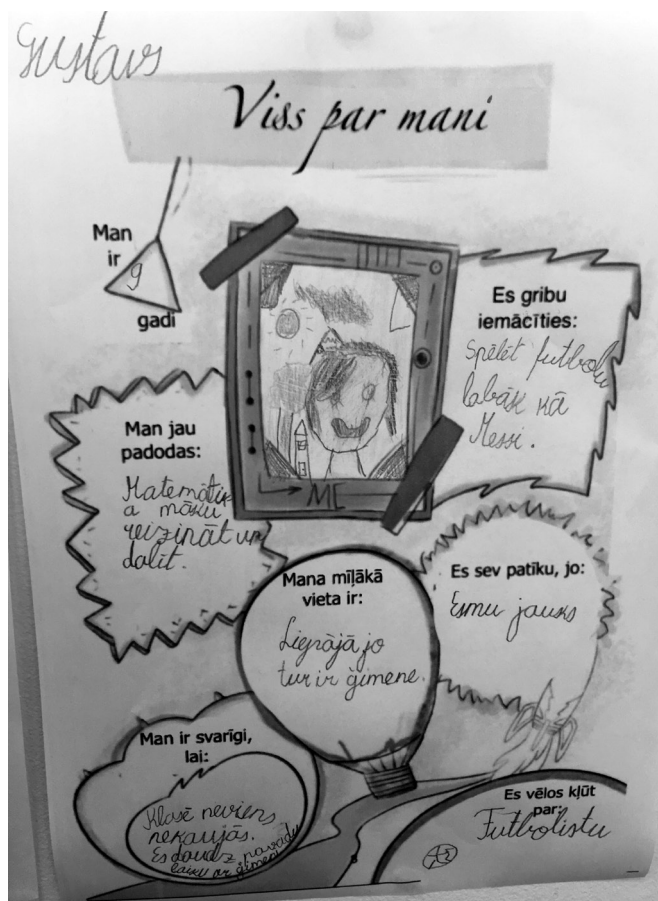 Gustavs
Viss par mani
Man
ir 9
gadi
Es gribu
iemācīties:
Spēlēt futbolu
labāk kā
Messi.
Man jau
padodas:
Matemātik
a māku
reizināt un
dalīt.
ME
Mana mīļākā
vieta ir:
Liepājā jo
tur ir ģimene.
Es sev patīku, jo:
Esmu jauks
Man ir svarīgi,
lai:
Klasē neviens
nekaujās.
Es daudz pavadu
laiku ar ģimeni
Es vēlos kļūt
par:
Futbolistu